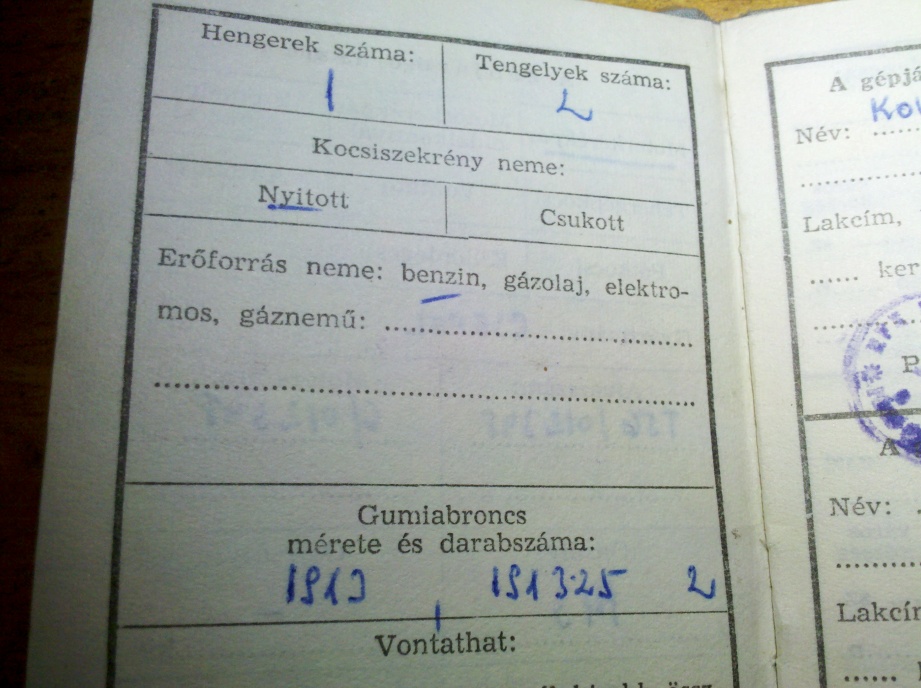 Hengerek száma:
1
Tengelyek száma:
2
Kocsiszekrény neme:
Nyitott
Csukott
Erőforrás neme: benzin, gázolaj, elektro-
mos, gáznemű:
Gumiabroncs
mérete és darabszáma:
1913 1913·25 2
Vontathat:
A
Név:
Lakcím,
ker
P
A
Név:
Lakcím